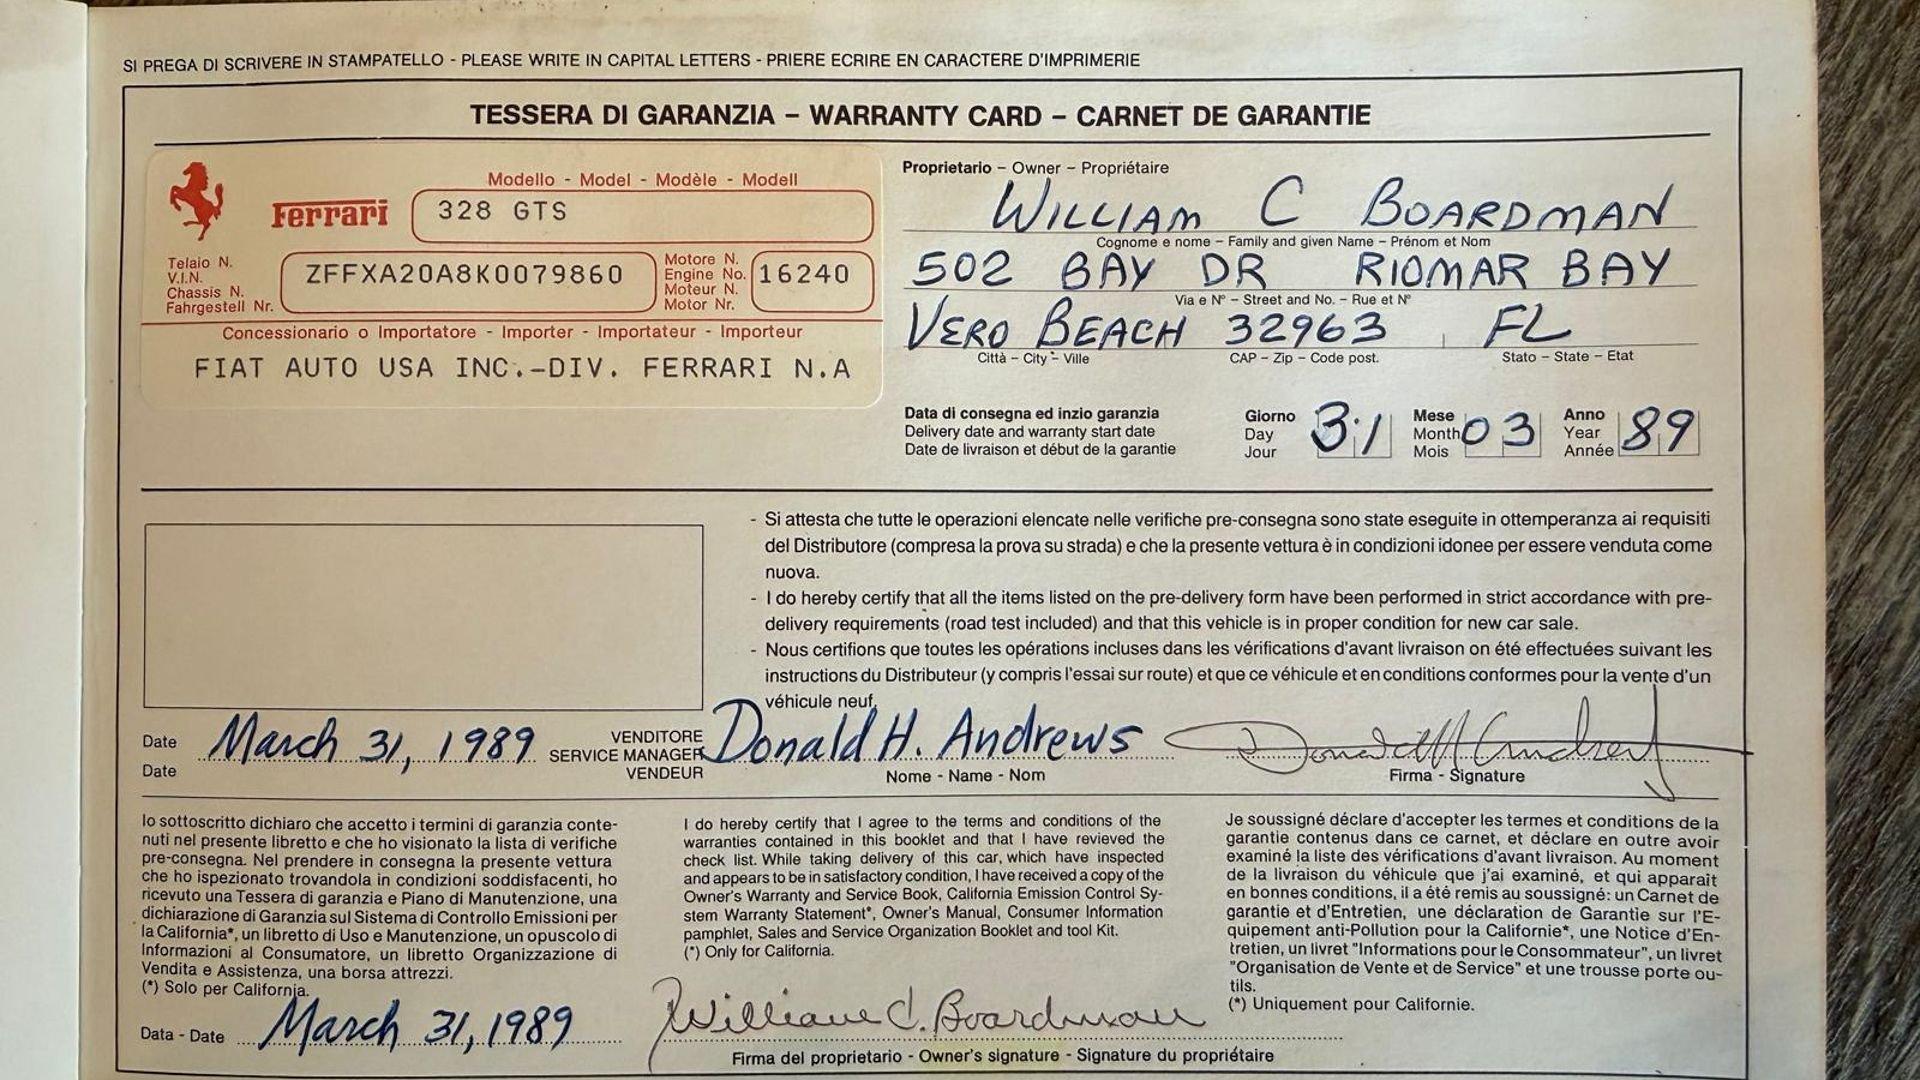 SI PREGA DI SCRIVERE IN STAMPATELLO - PLEASE WRITE IN CAPITAL LETTERS - PRIERE ECRIRE EN CARACTERE D'IMPRIMERIE
TESSERA DI GARANZIA – WARRANTY CARD – CARNET DE GARANTIE
Modello - Model - Modèle - Modell
Ferrari 328 GTS
Telaio N.
V.I.N.
Chassis N.
Fahrgestell Nr.
ZFFXA20A8K0079860
Motore N.
Engine No.
Moteur N.
Motor Nr.
16240
Concessionario o Importatore - Importer - Importateur - Importeur
FIAT AUTO USA INC.-DIV. FERRARI N.A
Proprietario – Owner – Propriétaire
WILLIAM C BOARDMAN
Cognome e nome – Family and given Name – Prénom et Nom
502 BAY DR RIOMAR BAY
Via e N° – Street and No. – Rue et N°
VERO BEACH 32963 FL
Città – City – Ville CAP – Zip – Code post. Stato – State – Etat
Data di consegna ed inzio garanzia
Delivery date and warranty start date
Date de livraison et début de la garantie
Giorno
Day
Jour
31
Mese
Month
Mois
03
Anno
Year
Année
89
- Si attesta che tutte le operazioni elencate nelle verifiche pre-consegna sono state eseguite in ottemperanza ai requisiti
del Distributore (compresa la prova su strada) e che la presente vettura è in condizioni idonee per essere venduta come
nuova.
- I do hereby certify that all the items listed on the pre-delivery form have been performed in strict accordance with pre-
delivery requirements (road test included) and that this vehicle is in proper condition for new car sale.
- Nous certifions que toutes les opérations incluses dans les vérifications d'avant livraison on été effectuées suivant les
instructions du Distributeur (y compris l'essai sur route) et que ce véhicule et en conditions conformes pour la vente d'un
véhicule neuf.
Date
Date
March 31, 1989
VENDITORE
SERVICE MANAGER
VENDEUR
Donald H. Andrews
Nome - Name - Nom
Donald H Andrews
Firma - Signature
Io sottoscritto dichiaro che accetto i termini di garanzia conte-
nuti nel presente libretto e che ho visionato la lista di verifiche
pre-consegna. Nel prendere in consegna la presente vettura
che ho ispezionato trovandola in condizioni soddisfacenti, ho
ricevuto una Tessera di garanzia e Piano di Manutenzione, una
dichiarazione di Garanzia sul Sistema di Controllo Emissioni per
la California*, un libretto di Uso e Manutenzione, un opuscolo di
Informazioni al Consumatore, un libretto Organizzazione di
Vendita e Assistenza, una borsa attrezzi.
(*) Solo per California.
I do hereby certify that I agree to the terms and conditions of the
warranties contained in this booklet and that I have revieved the
check list. While taking delivery of this car, which have inspected
and appears to be in satisfactory condition, I have received a copy of the
Owner's Warranty and Service Book, California Emission Control Sy-
stem Warranty Statement*, Owner's Manual, Consumer Information
pamphlet, Sales and Service Organization Booklet and tool Kit.
(*) Only for California.
Je soussigné déclare d'accepter les termes et conditions de la
garantie contenus dans ce carnet, et déclare en outre avoir
examiné la liste des vérifications d'avant livraison. Au moment
de la livraison du véhicule que j'ai examiné, et qui apparaît
en bonnes conditions, il a été remis au soussigné: un Carnet de
garantie et d'Entretien, une déclaration de Garantie sur l'E-
quipement anti-Pollution pour la Californie*, une Notice d'En-
tretien, un livret "Informations pour le Consommateur", un livret
"Organisation de Vente et de Service" et une trousse porte ou-
tils.
(*) Uniquement pour Californie.
Data - Date March 31, 1989
William C. Boardman
Firma del proprietario - Owner's signature - Signature du propriétaire